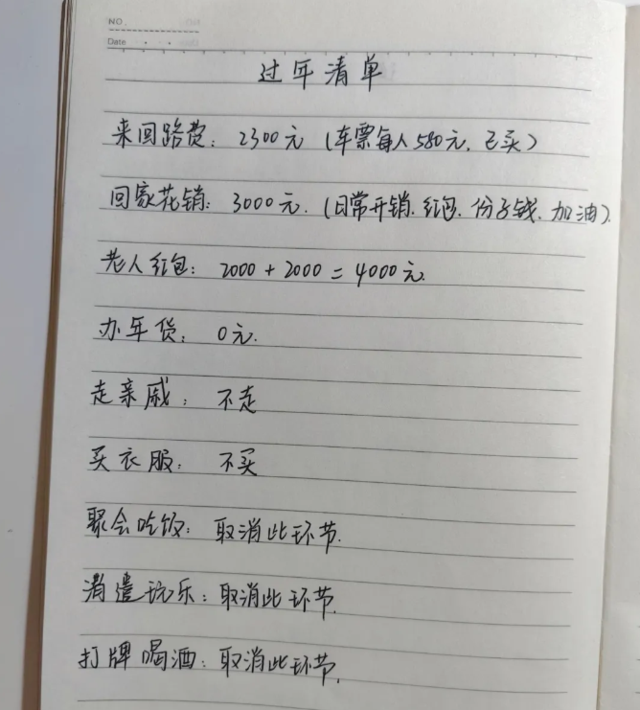 NO.
Date
过年清单
来回路费：2300元（车票每人580元，已买）
回家花销：3000元.（日常开销.红包.份子钱.加油）.
老人红包：2000+2000=4000元.
办年货：0元.
走亲戚：不走
买衣服：不买
聚会吃饭：取消此环节.
消遣玩乐：取消此环节.
打牌喝酒：取消此环节.